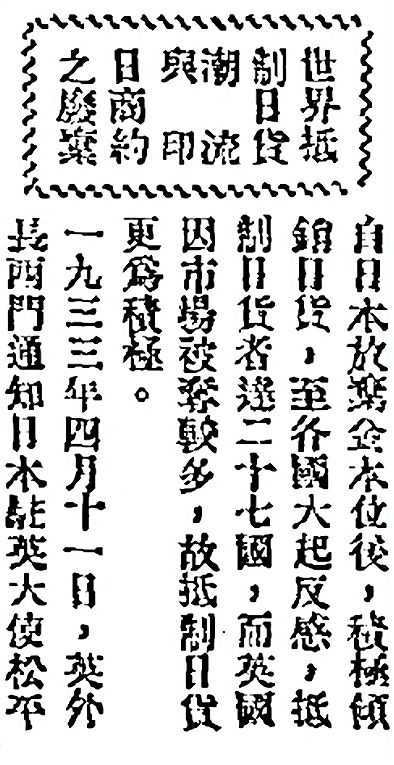 世界抵
制日货
潮流
與印
日商約
之廢棄
自日本放棄金本位後，積極傾
銷日貨，至各國大起反感，抵
制日貨者達二十七國，而英國
因市場被奪較多，故抵制日貨
更爲積極。
一九三三年四月十一日，英外
長西門通知日本駐英大使松平